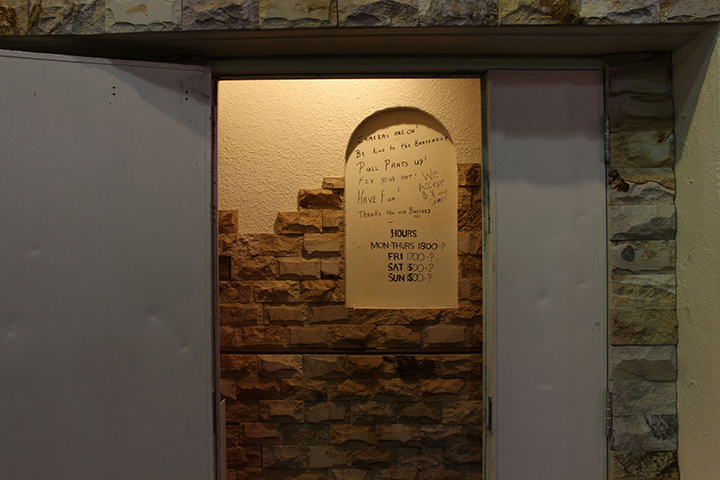 CAMERAS ARE ON!
BE KIND to the BARTENDER
PULL PANTS UP!
FIX YOUR HAT!
HAVE FUN!
We
Accept
THANKS the old BASTARD
HOURS
MON-THURS 1500-?
FRI 1700-?
SAT 1500-?
SUN 1500-?